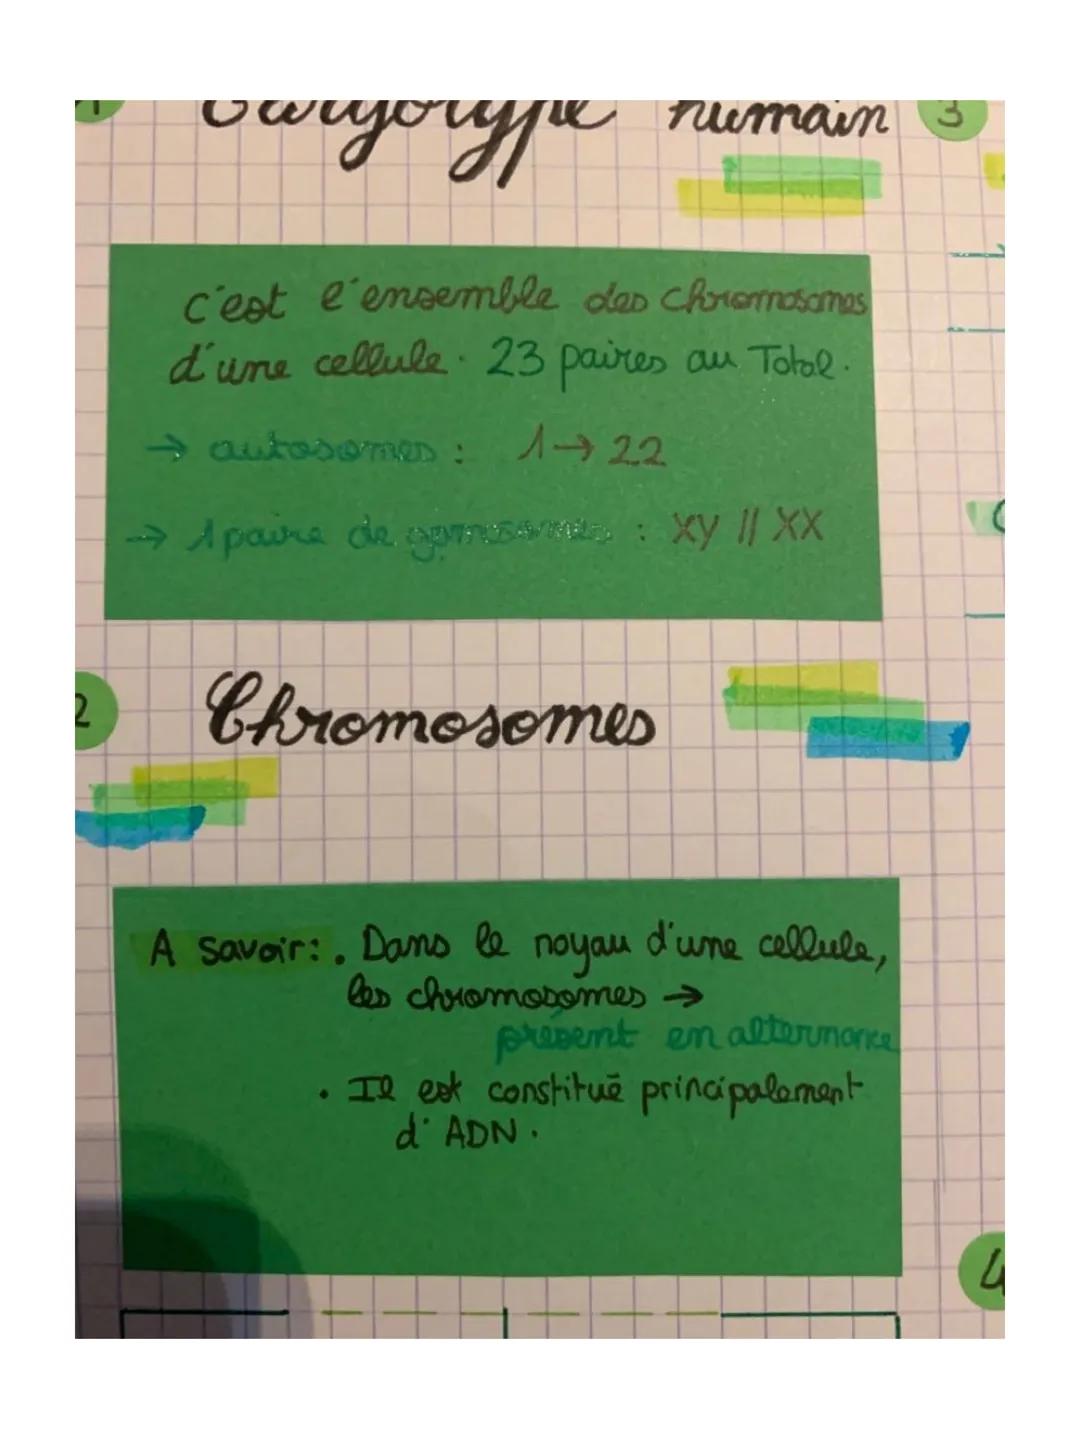 1
Caryotype humain
3
c'est l'ensemble des chromosomes
d'une cellule. 23 paires au Total.
→ autosomes : 1→22
→ 1 paire de gonosomes : XY // XX
2
Chromosomes
A savoir: . Dans le noyau d'une cellule,
les chromosomes →
présent en alternance
. Il est constitué principalement
d'ADN.
4